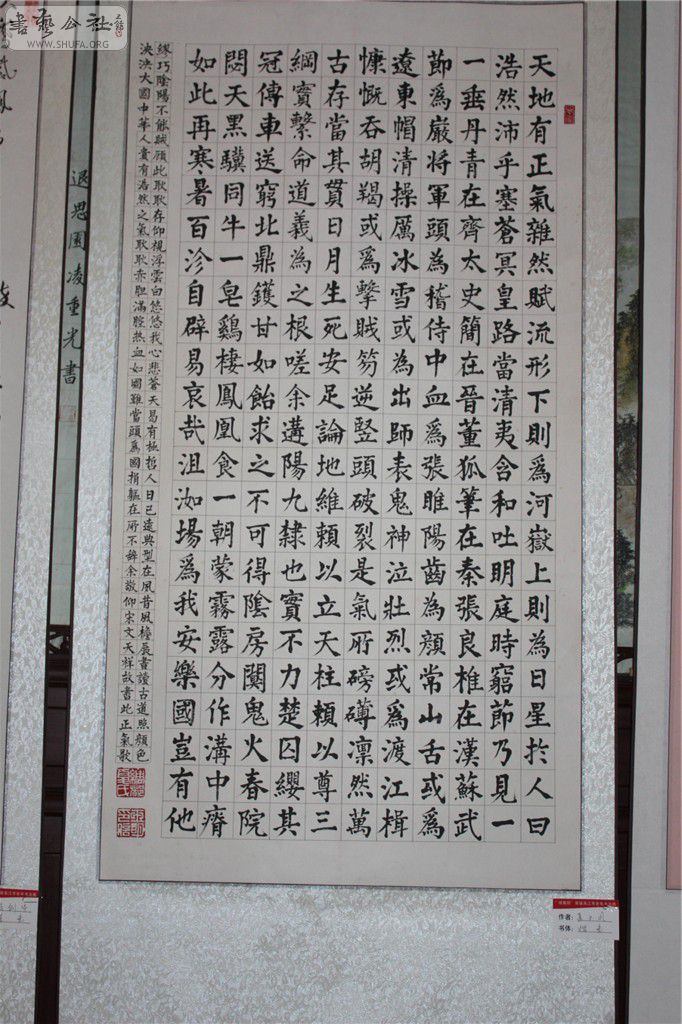 書藝公社
WWW.SHUFA.ORG
天地有正氣雜然賦流形下則爲河嶽上則為日星於人曰
浩然沛乎塞蒼冥皇路當清夷含和吐明庭時窮節乃見一
一垂丹青在齊太史簡在晉董狐筆在秦張良椎在漢蘇武
節爲嚴將軍頭為稽侍中血爲張睢陽齒為顏常山舌或爲
遼東帽清操厲冰雪或為出師表鬼神泣壯烈或爲渡江楫
慷慨吞胡羯或爲擊賊笏逆竪頭破裂是氣所磅礡凜然萬
古存當其貫日月生死安足論地維賴以立天柱賴以尊三
綱實繫命道義為之根嗟余遘陽九隸也實不力楚囚纓其
冠傳車送窮北鼎鑊甘如飴求之不可得陰房闃鬼火春院
閟天黑驥同牛一皂鷄棲鳳凰食一朝蒙霧露分作溝中瘠
如此再寒暑百沴自辟易哀哉沮洳場爲我安樂國豈有他
繆巧陰陽不能賊顧此耿耿存仰視浮雲白悠悠我心悲蒼天曷有極哲人日已遠典型在夙昔風檐展書讀古道照顏色
泱泱大國中華人貴有浩然之氣耿耿赤胆滿腔热血如國難當頭爲國捐軀在所不辭余敬仰宋文天祥故書此正氣歌
退思園凌重光書
作者：
书体：楷书